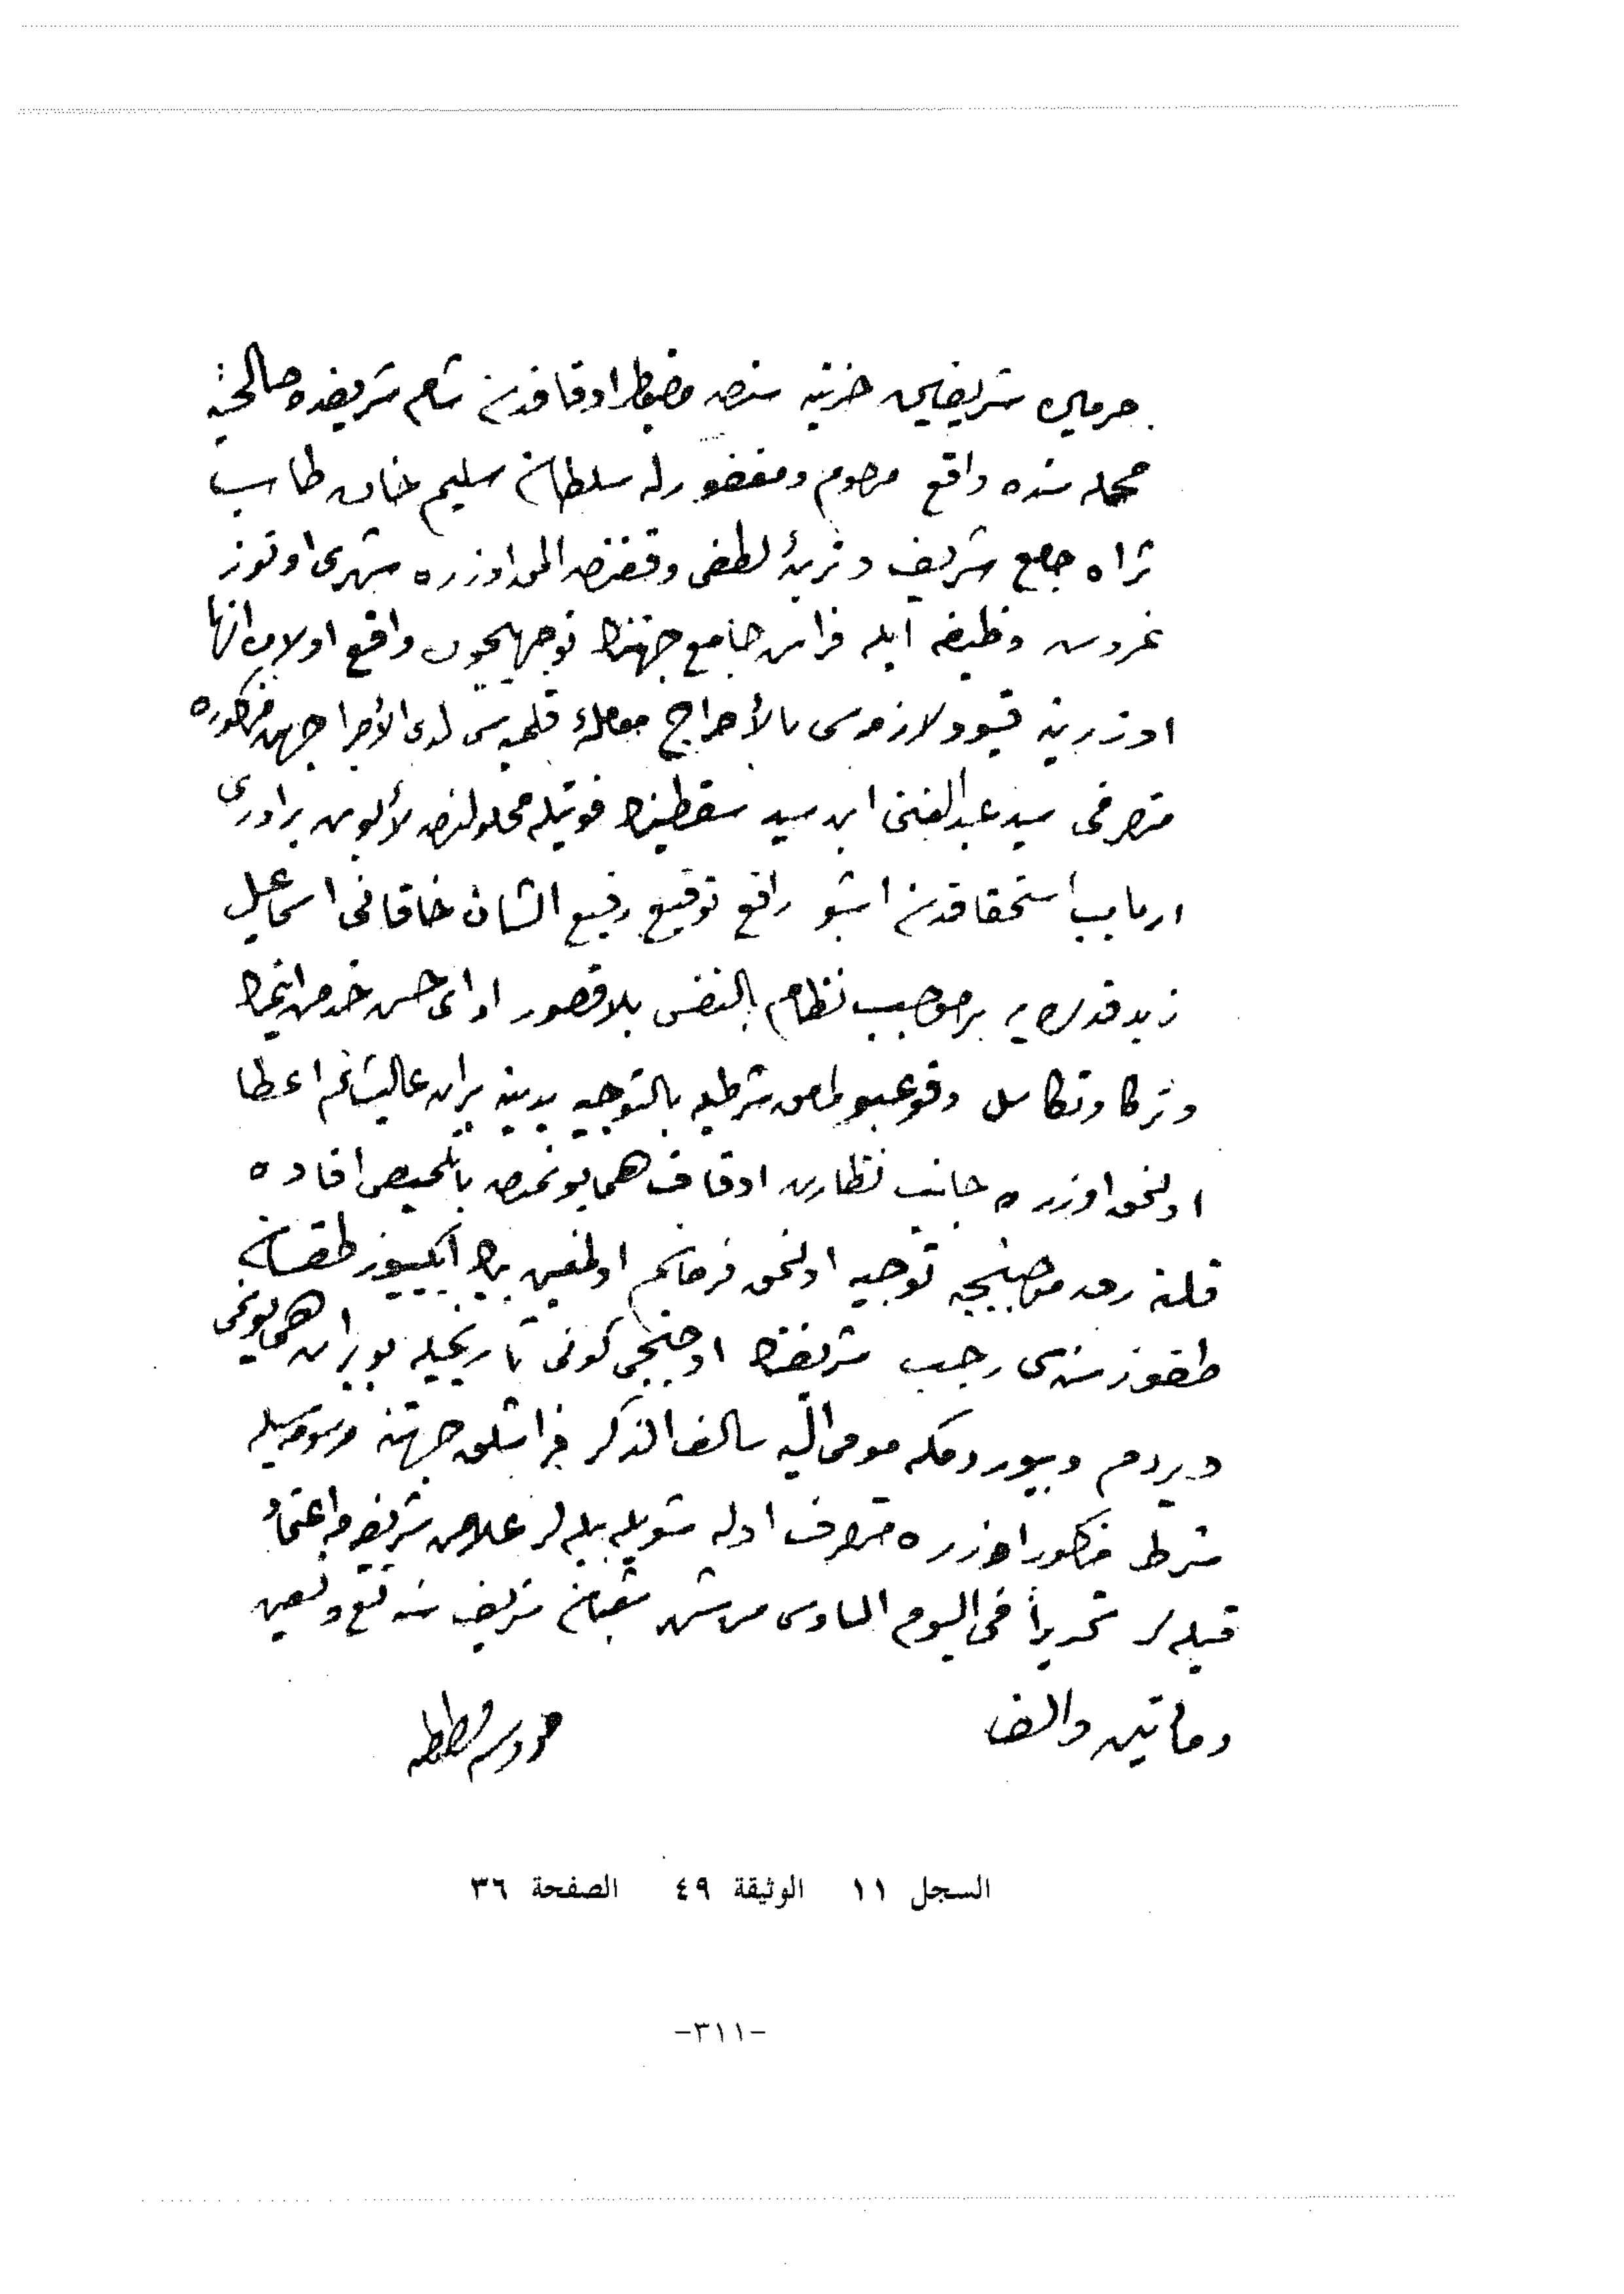 حرمين شريفين خزينه سندن مضبوط اوقافدن شام شريفده صالحيه
محله سنده واقع مرحوم ومغفور له سلطان سليم خان طاب
ثراه جامع شريف وتربهٔ لطفى وقفندن المق اوزره شهرى اوتوز
غروش وظيفه ايله فراش جامع جهتنك توجيهيچون واقع اولان انها
اوزرينه قيود لازمه سى بالأخراج معاملهٔ قلميه سى لدى الأجرا جهت مذكوره
متصرفى سيد عبد الغنى ابن سيد فوتيله محلولندن لأبوين برادرى
ارباب استحقاقدن اشبو رافع توقيع رفيع الشان خاقانى اسماعيل
زيد قدره يه بر موجب نظام بالنفس بلا قصور اداى حسن خدمت ايتمك
وترك وتكاسل وقوعبولمامق شرطيله بالتوجيه يدينه برات عاليشانم اعطا
اولنمق اوزره جانب نظارت اوقاف همايونمدن بالتلخيص افاده
قلنه رق موجبنجه توجيه اولنمق فرمانم اولمغين بيك ايكييوز طقسان
طقوز سنه سى رجب شريفنك اوچنجى كونى تاريخيله بو برات همايونى
ويردم وبيوردمكه مومى اليه سالف الذكر فراشلق جهتنه مرسومه سيله
شرط مذكور اوزره متصرف اوله شويله بيله لر علامت شريفه مه اعتماد
قيله لر تحريراً فى اليوم السادس من شهر شعبان شريف سنه تسع وتسعين
ومائتين والف
السجل ١١ الوثيقة ٤٩ الصفحة ٣٦
-٣١١-